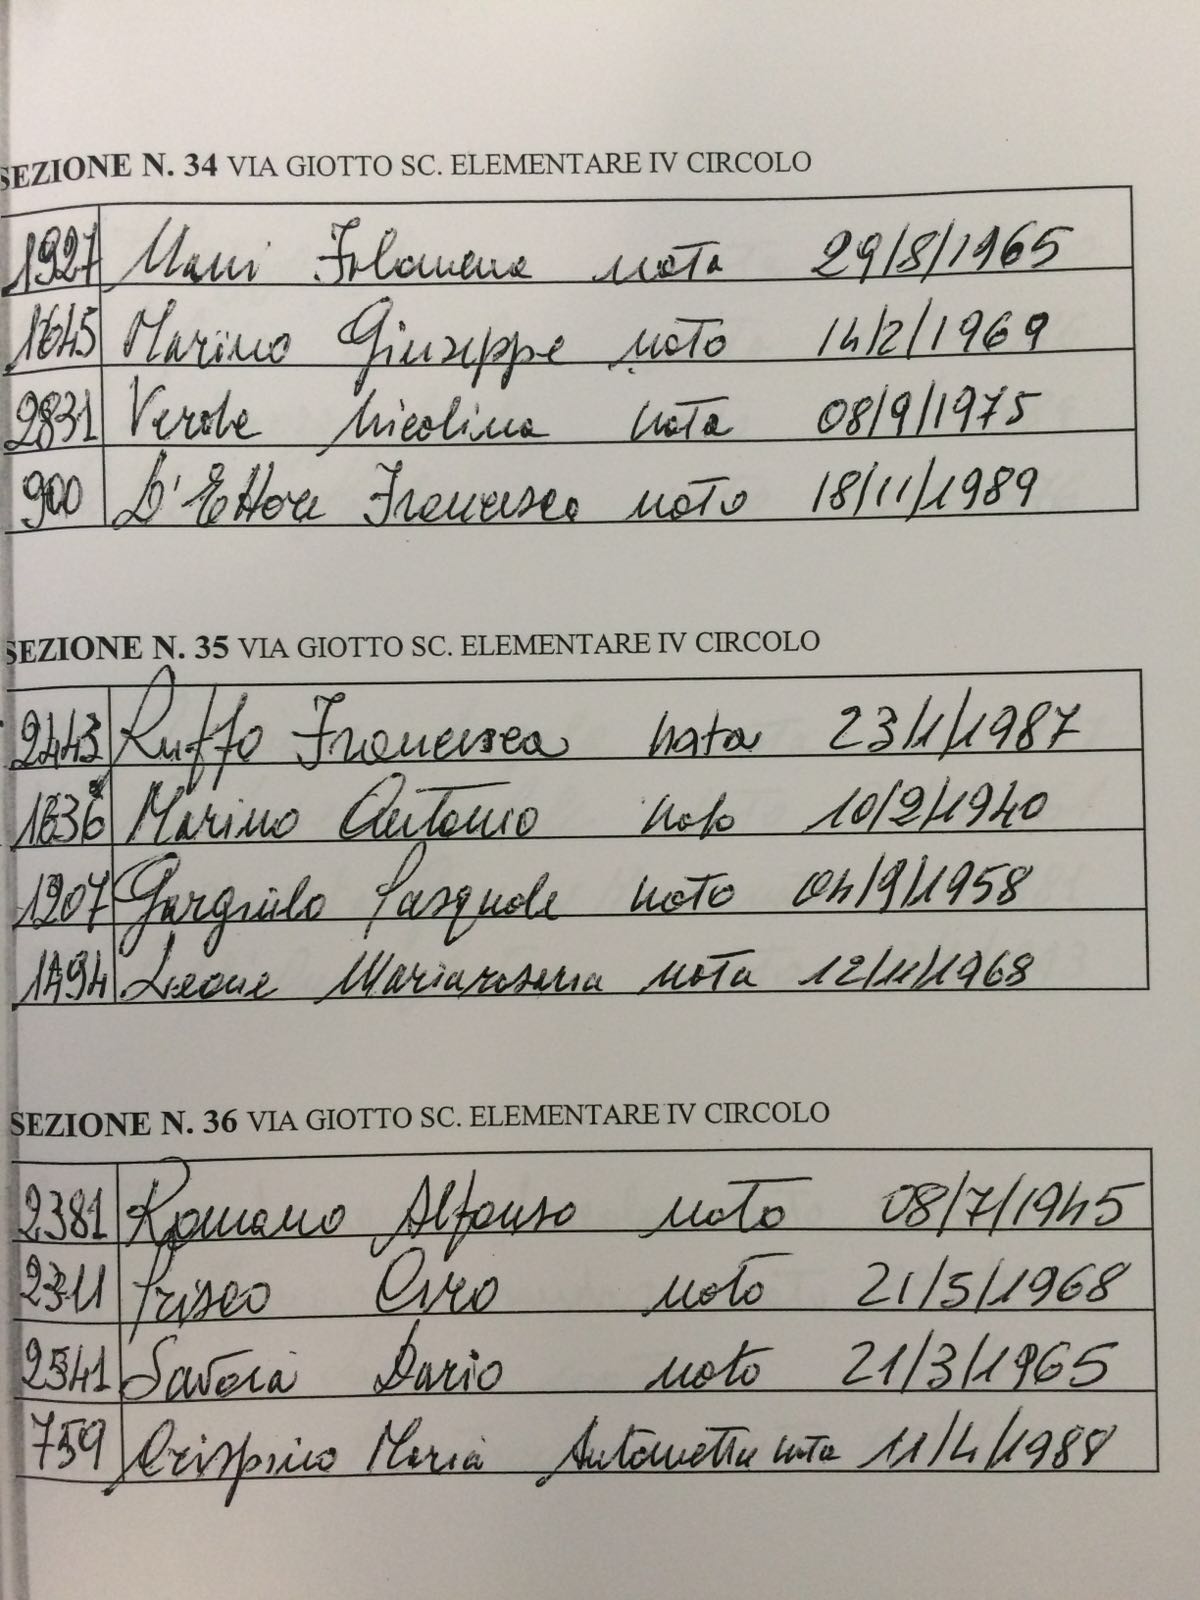 SEZIONE N. 34 VIA GIOTTO SC. ELEMENTARE IV CIRCOLO
1927 Filomena nata 29/8/1965
1645 Marino Giuseppe nato 14/2/1969
2831 Verole Nicolina nata 08/9/1975
900 D'Ettore Francesco nato 18/11/1989
SEZIONE N. 35 VIA GIOTTO SC. ELEMENTARE IV CIRCOLO
2443 Ruffo Francesca nata 23/1/1987
1636 Marino Antonio nato 10/2/1940
1207 Gargiulo Pasquale nato 04/9/1958
1494 Leone Mariarosaria nata 12/11/1968
SEZIONE N. 36 VIA GIOTTO SC. ELEMENTARE IV CIRCOLO
2381 Romano Alfonso nato 08/7/1945
2311 Prisco Ciro nato 21/5/1968
2541 Savoia Dario nato 21/3/1965
759 Crispino Maria Antonietta nata 11/4/1988